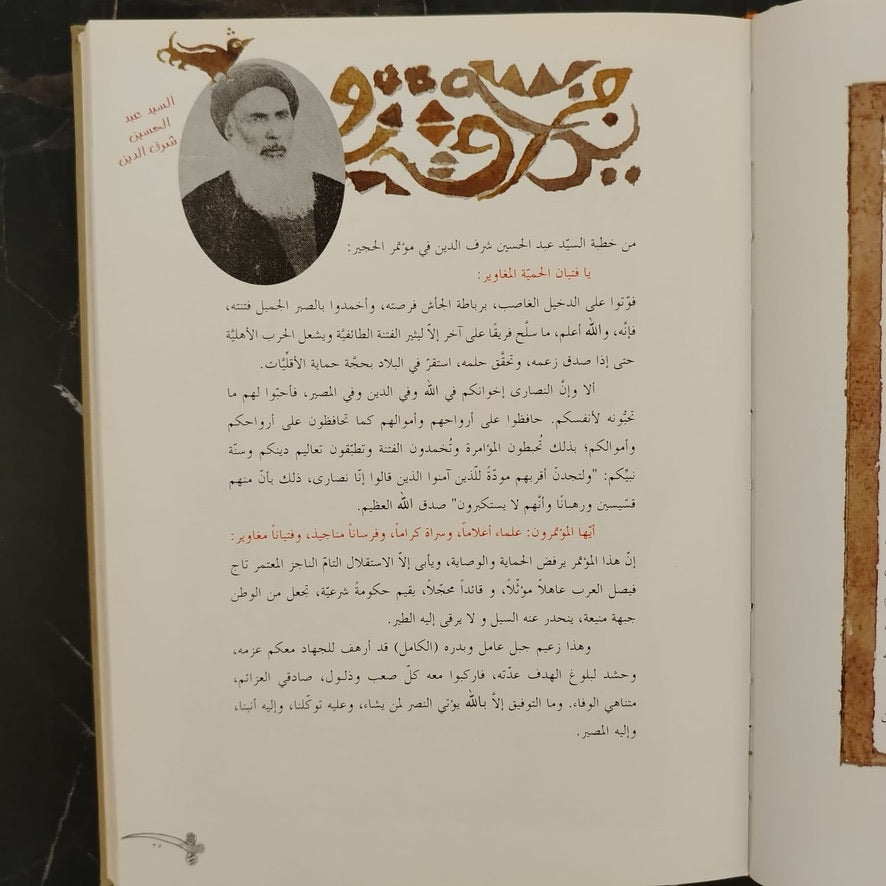 السيد عبد
الحسين
شرف الدين
من خطبة السيّد عبد الحسين شرف الدين في مؤتمر الحجير:
يا فتيان الحميّة المغاوير:
فوّتوا على الدخيل الغاصب، برباطة الجأش فرصته، وأخمدوا بالصبر الجميل فتنته،
فإنَّه، والله أعلم، ما سلَّح فريقًا على آخر إلاّ ليثير الفتنة الطائفيَّة ويشعل الحرب الأهليَّة
حتى إذا صدق زعمه، وتحقَّق حلمه، استقرّ في البلاد بحجَّة حماية الأقلِّيَّات.
ألا وإنَّ النصارى إخوانكم في الله وفي الدين وفي المصير، فأحبّوا لهم ما
تحبُّونه لأنفسكم. حافظوا على أرواحهم وأموالهم كما تحافظون على أرواحكم
وأموالكم؛ بذلك تُحبطون المؤامرة وتُخمدون الفتنة وتطبّقون تعاليم دينكم وسنّة
نبيِّكم: "ولتجدنّ أقربهم مودّةً للّذين آمنوا الذين قالوا إنّا نصارى، ذلك بأنّ منهم
قسّيسين ورهبانًا وأنَّهم لا يستكبرون" صدق الله العظيم.
أيّها المؤتمرون: علماء أعلاماً، وسراة كراماً، وفرساناً مناجيذ، وفتياناً مغاوير:
إنّ هذا المؤتمر يرفض الحماية والوصاية، ويأبى إلاّ الاستقلال التامّ الناجز المعتمر تاج
فيصل العرب عاهلاً مؤثّلاً، و قائداً محجّلاً، يقيم حكومةً شرعيّة، تجعل من الوطن
جبهة منيعة، ينحدر عنه السيل و لا يرقى إليه الطير.
وهذا زعيم جبل عامل وبدره (الكامل) قد أرهف للجهاد معكم عزمه،
وحشد لبلوغ الهدف عدّته، فاركبوا معه كلّ صعب وذلـول، صادقي العزائم،
متناهي الوفاء. وما التوفيق إلاَّ بالله يؤتي النصر لمن يشاء، وعليه توكّلنا، وإليه أنبنا،
وإليه المصير.
٣٥